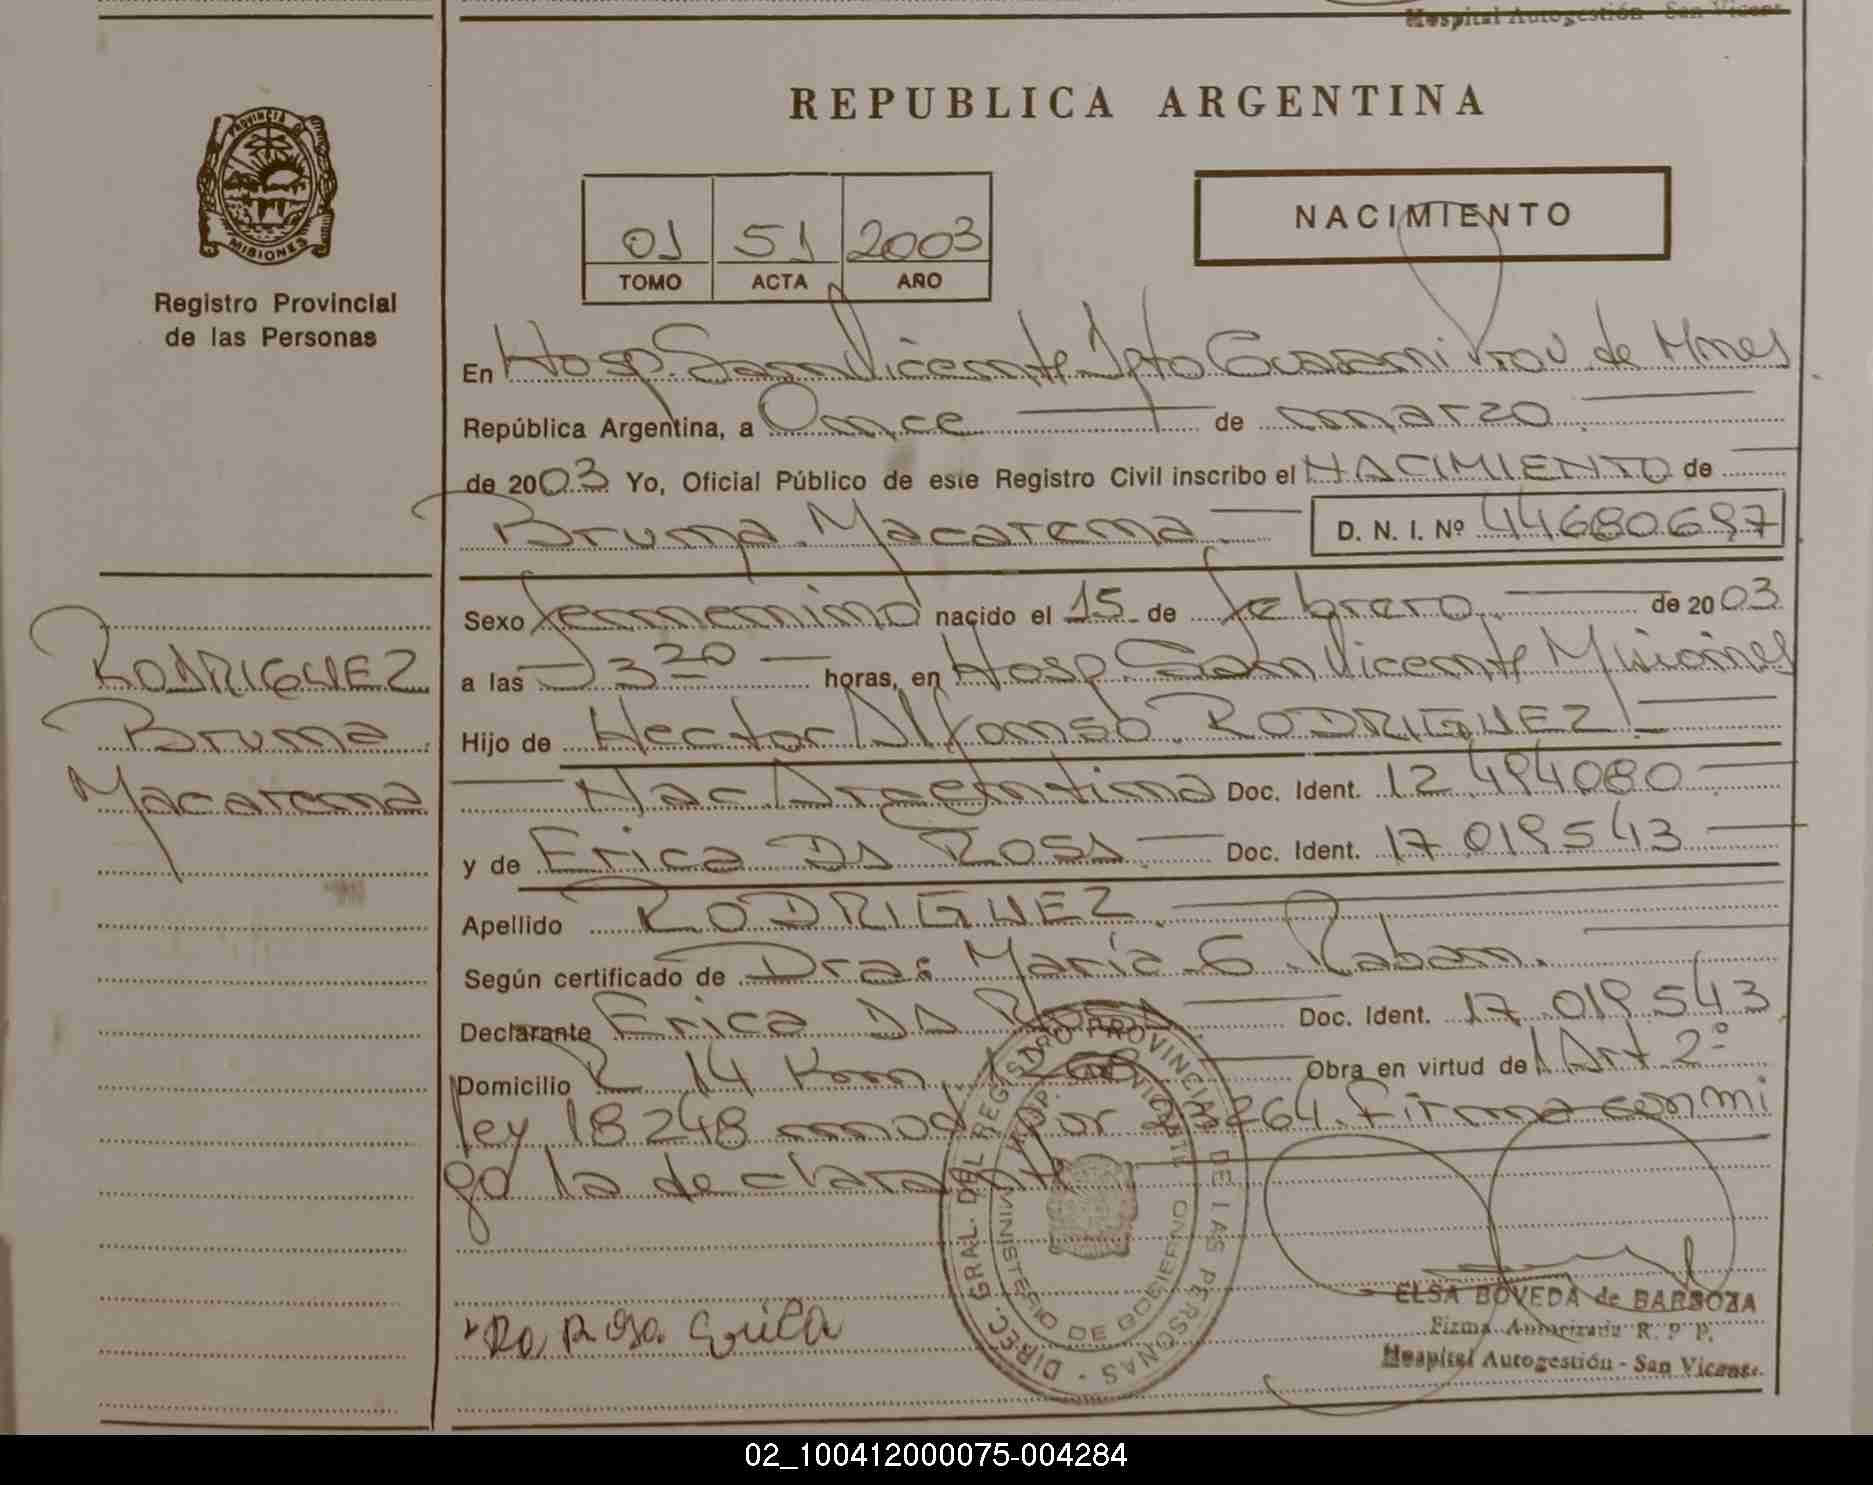 Hospital Autogestión - San Vicente
PROVINCIA DE
MISIONES
Registro Provincial
de las Personas
REPUBLICA ARGENTINA
01 51 2003
TOMO ACTA AÑO
NACIMIENTO
En Hosp. San Vicente Dpto Guarani Prov de Mnes
República Argentina, a Once de marzo
de 2003 Yo, Oficial Público de este Registro Civil inscribo el NACIMIENTO de
Bruna Macarena D. N. I. Nº 44680697
Sexo femenino nacido el 15 de febrero de 2003
a las 13 20 horas, en Hosp. San Vicente Misiones
Hijo de Hector Alfonso RODRIGUEZ
Nac Argentina Doc. Ident. 12.494080
y de Erica DA ROSA Doc. Ident. 17.019543
Apellido RODRIGUEZ
Según certificado de Dra: Maria G. Raban.
Declarante Erica DA ROSA Doc. Ident. 17.019543
Domicilio R 14 Km. 1268 Obra en virtud del Art. 2º
ley 18248 mod por 23264. Firma conmi
go la declarante
RODRIGUEZ
Bruna
Macarena
DIREC. GRAL. DEL REGISTRO PROVINCIAL DE LAS PERSONAS
MINISTERIO DE GOBIERNO
Da Rosa Erica
ELSA BOVEDA de BARBOZA
Firma Autorizada R. P. P.
Hospital Autogestión - San Vicente
02_100412000075-004284